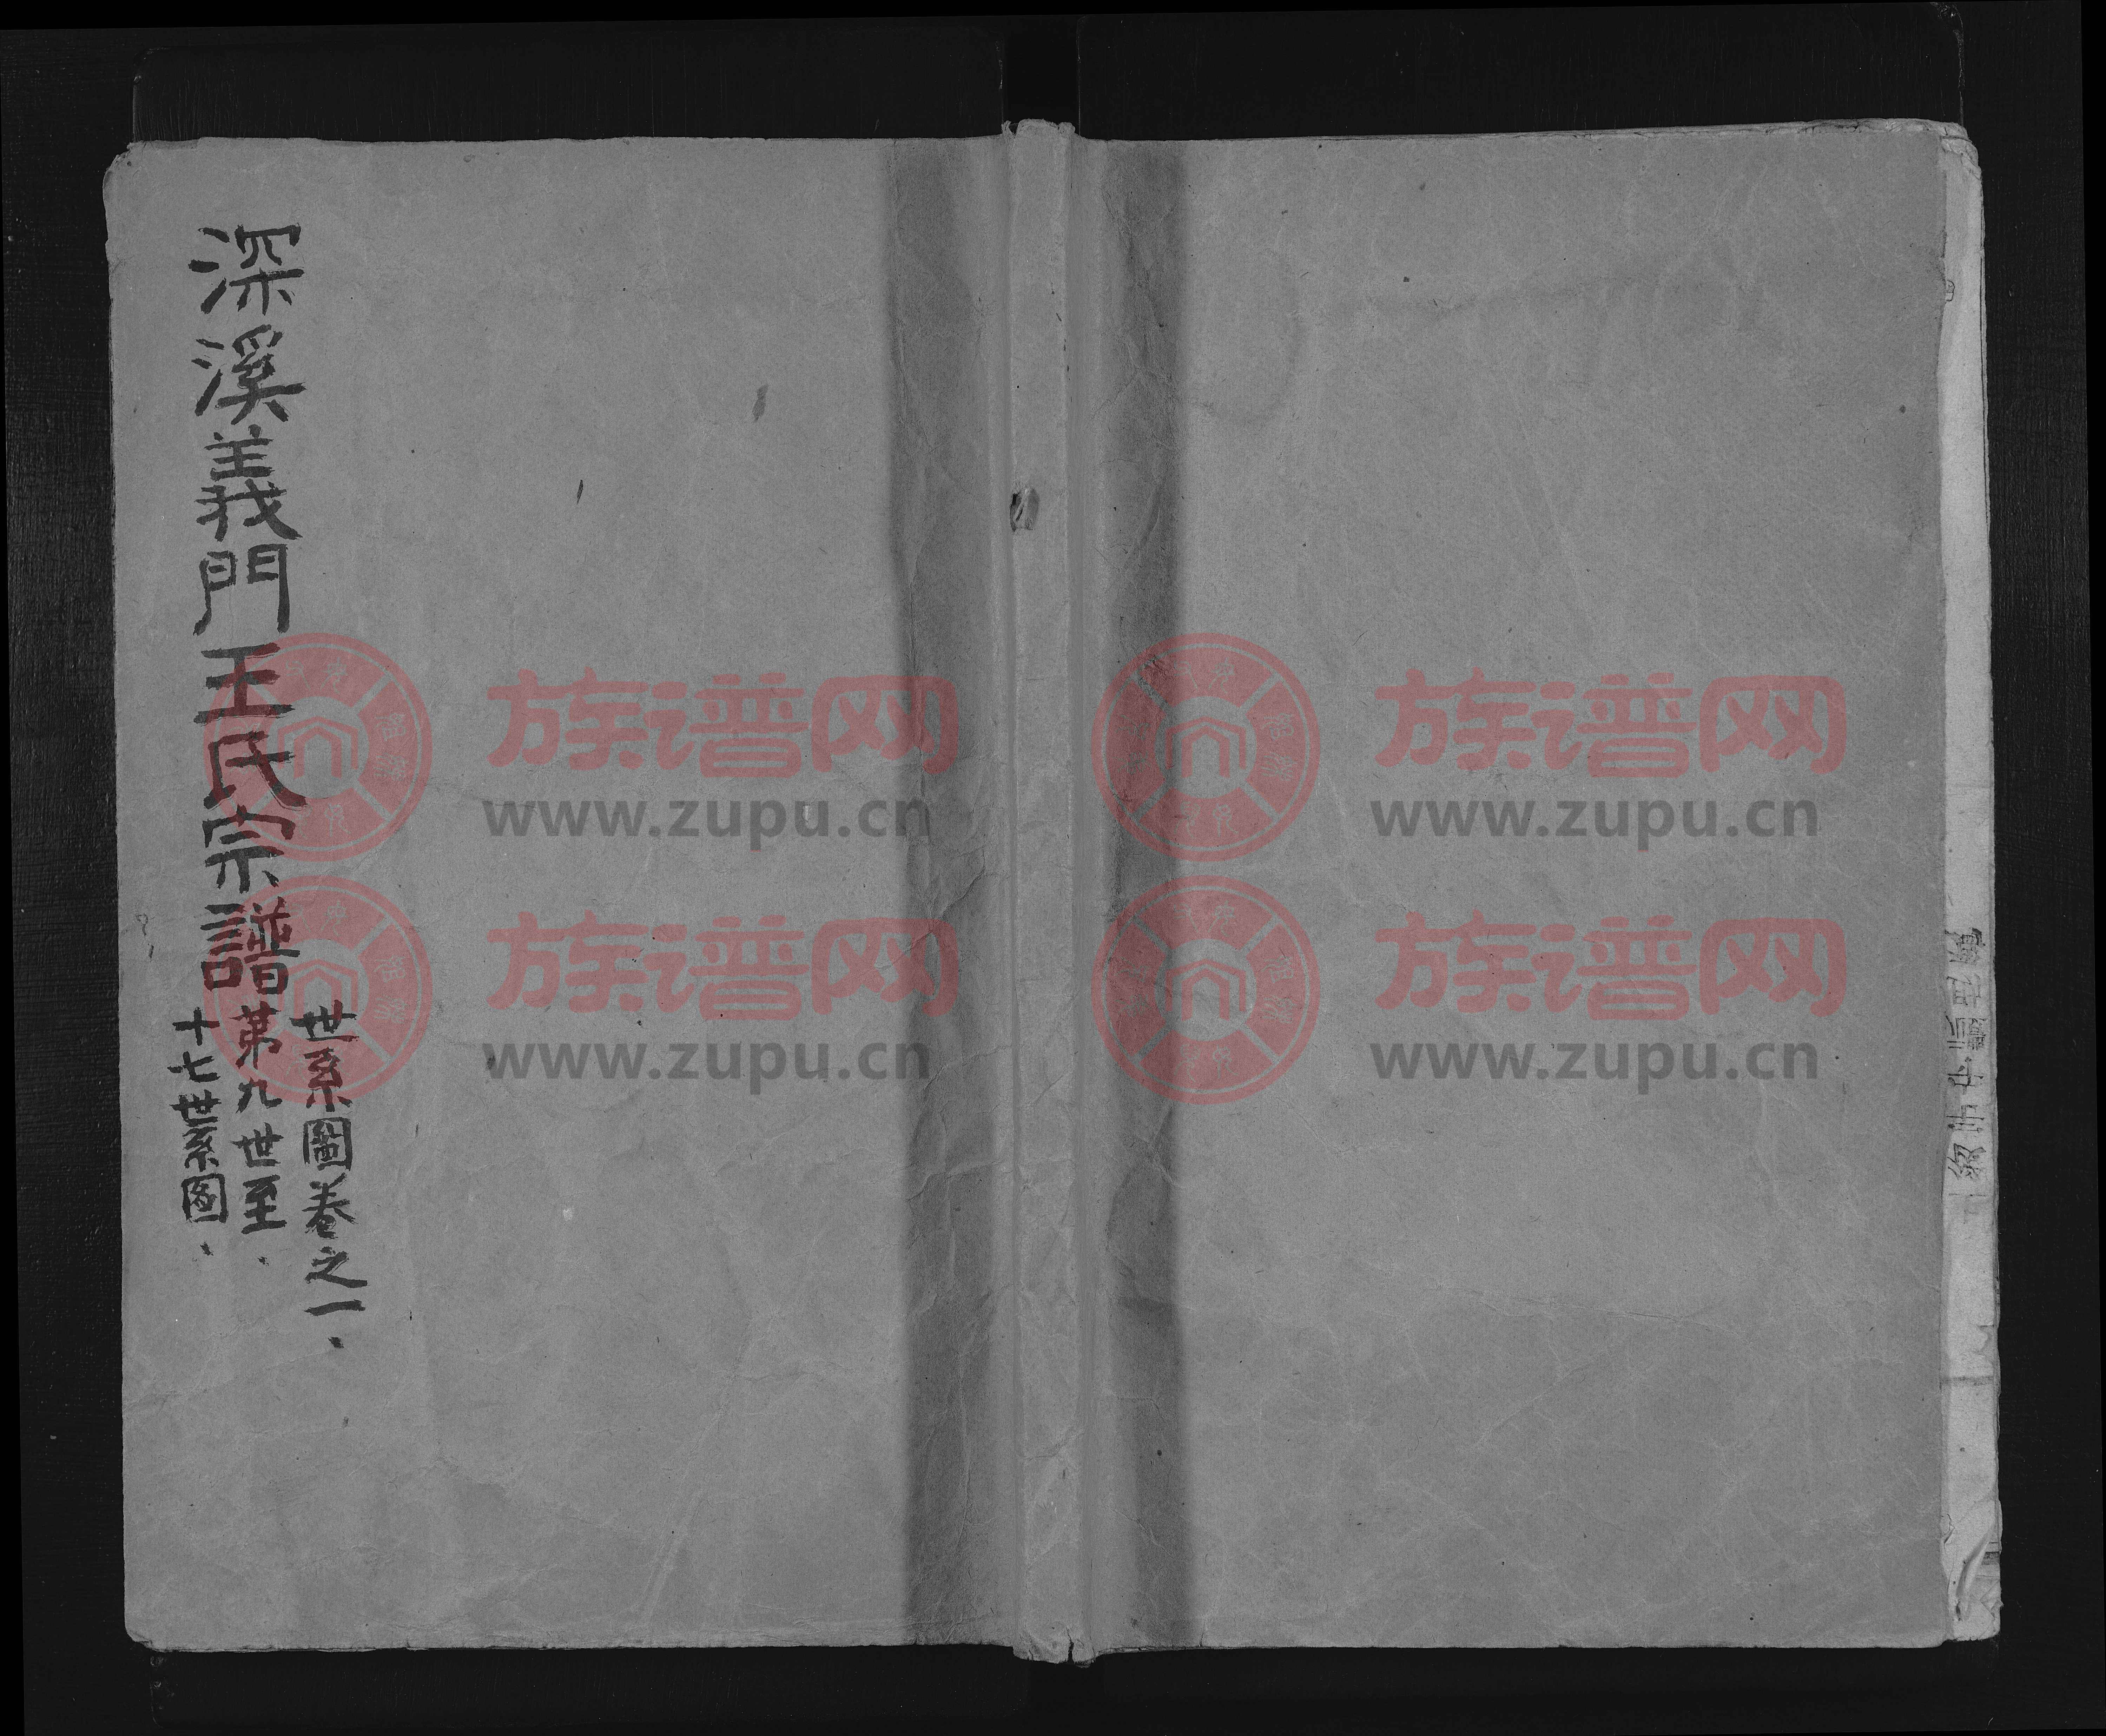 深溪義門王氏宗譜
世系圖卷之一.
第九世至.
十七世系圖.
族谱网
www.zupu.cn
族谱网
www.zupu.cn
族谱网
www.zupu.cn
族谱网
www.zupu.cn